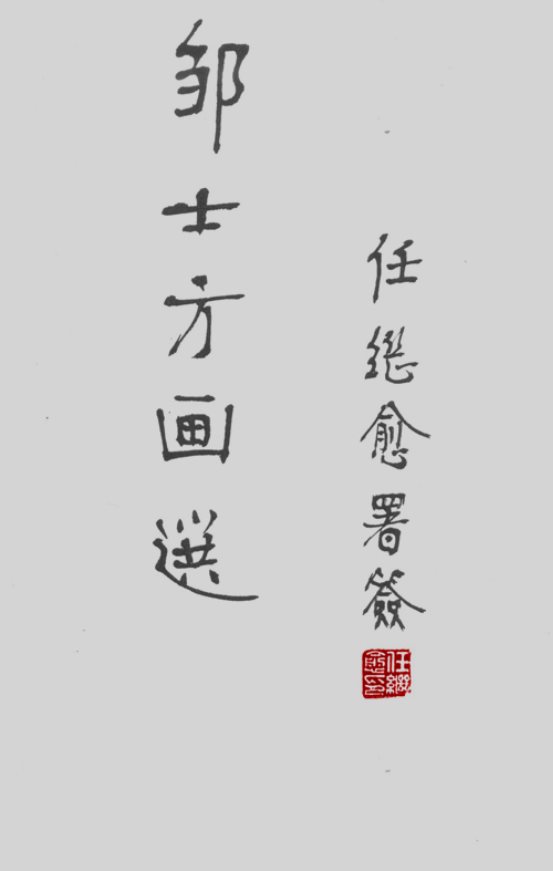 任继愈署簽
任繼愈印
邹士方画選